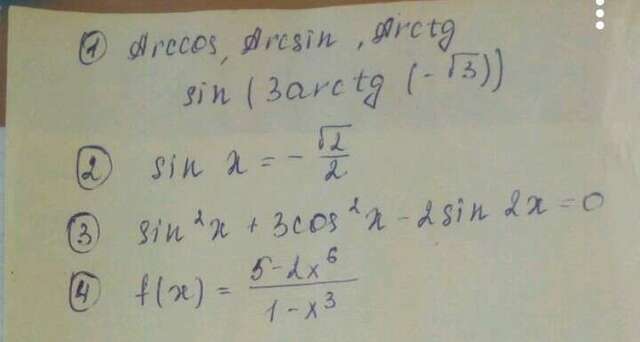 ① Arccos, Arcsin, Arctg
sin (3arctg (-√3))
② sin x = - √2/2
③ sin²x + 3cos²x - 2sin 2x = 0
④ f(x) = (5-2x⁶)/(1-x³)